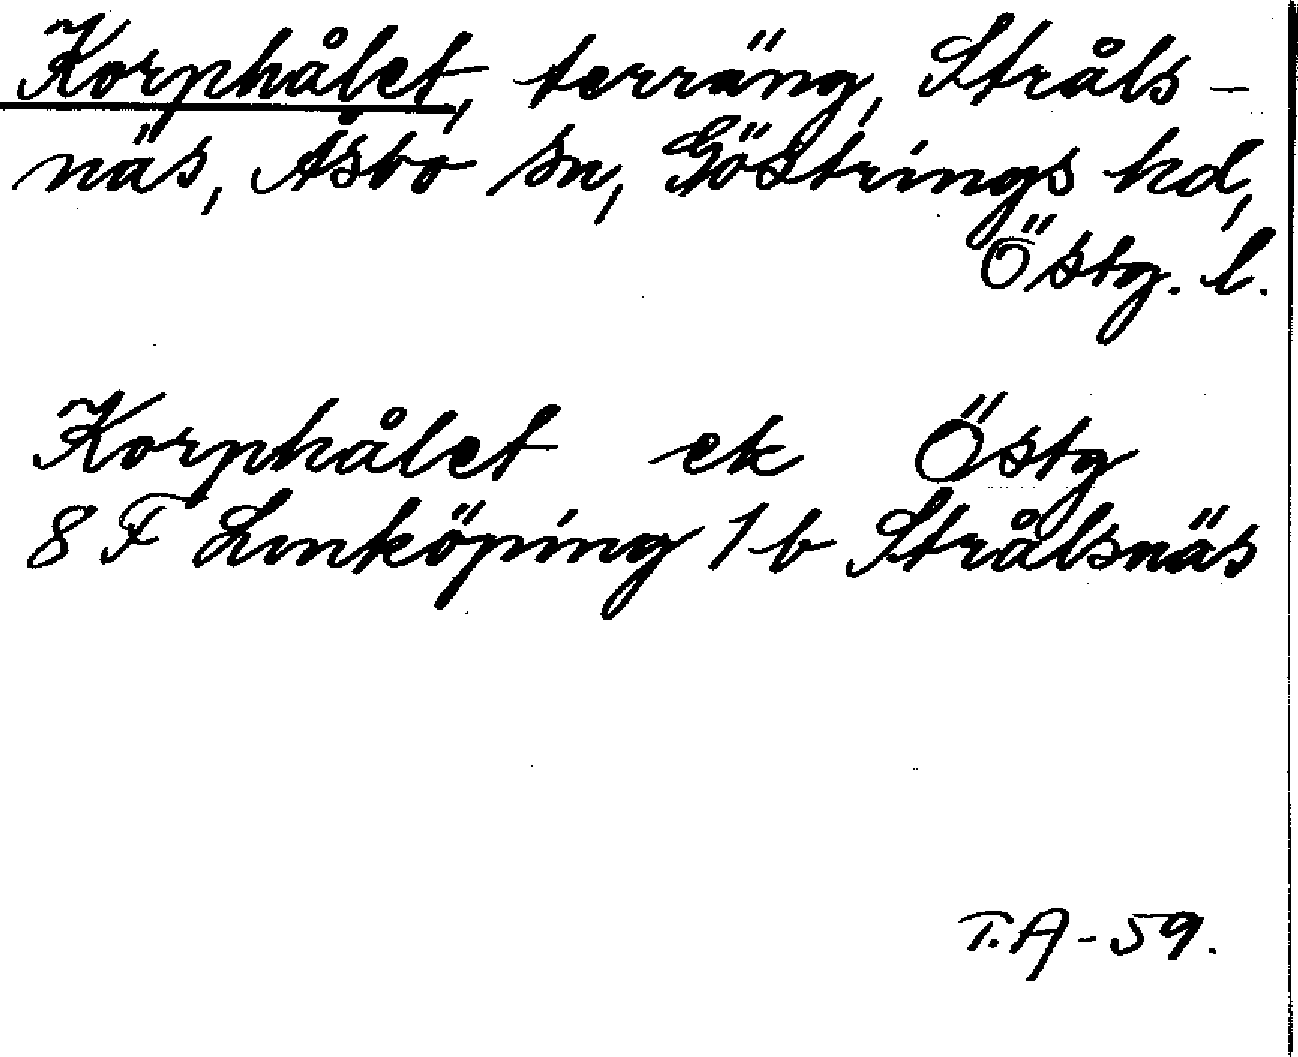 Korphålet, terräng, Stråls-
näs, Åsbo sn, Göstrings hd,
Östg. l.
Korphålet ek Östg
8 F Linköping 1 b Strålsnäs
T.A-59.